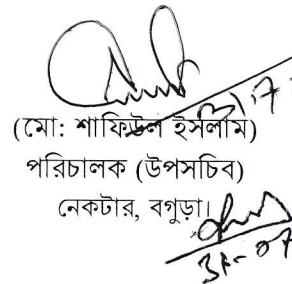 31.7
(মো: শাফিউল ইসলাম)
পরিচালক (উপসচিব)
নেকটার, বগুড়া।
31-07